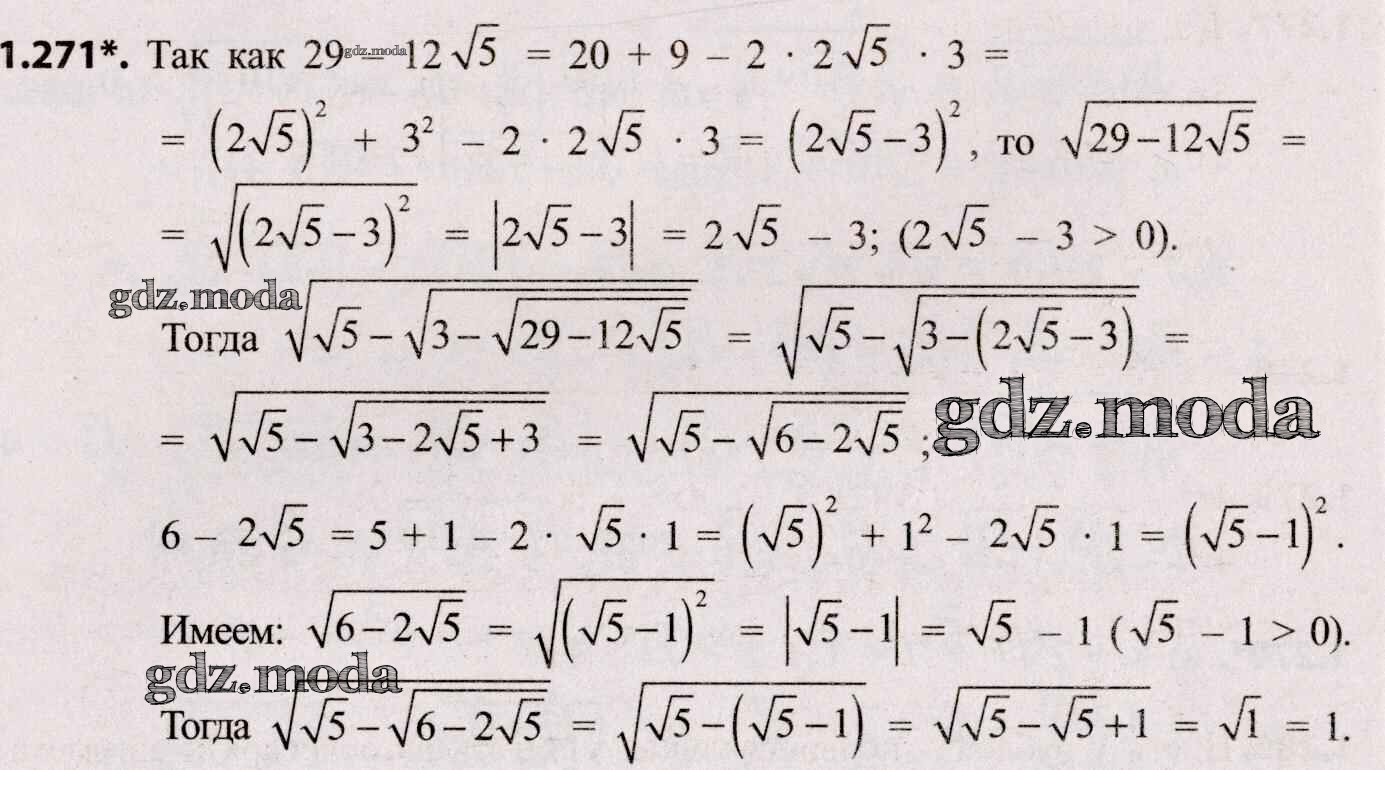 1.271*. Так как 29 – 12√5 = 20 + 9 – 2 · 2√5 · 3 =
gdz.moda
= (2√5)² + 3² – 2 · 2√5 · 3 = (2√5 – 3)², то √(29 – 12√5) =
= √((2√5 – 3)²) = |2√5 – 3| = 2√5 – 3; (2√5 – 3 > 0).
gdz.moda
Тогда √(√5 – √(3 – √(29 – 12√5))) = √(√5 – √(3 – (2√5 – 3))) =
= √(√5 – √(3 – 2√5 + 3)) = √(√5 – √(6 – 2√5)) ;
gdz.moda
6 – 2√5 = 5 + 1 – 2 · √5 · 1 = (√5)² + 1² – 2√5 · 1 = (√5 – 1)².
Имеем: √(6 – 2√5) = √((√5 – 1)²) = |√5 – 1| = √5 – 1 (√5 – 1 > 0).
gdz.moda
Тогда √(√5 – √(6 – 2√5)) = √(√5 – (√5 – 1)) = √(√5 – √5 + 1) = √1 = 1.